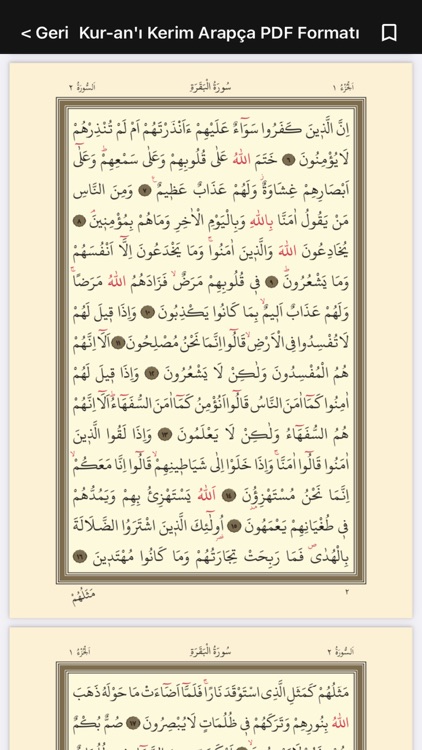 < Geri Kur-an'ı Kerim Arapça PDF Formatı
اَلْجُزْءُ ١ سُورَةُ الْبَقَرَةِ اَلسُّورَةُ ٢
اِنَّ الَّذ۪ينَ كَفَرُوا سَوَٓاءٌ عَلَيْهِمْ ءَاَنْذَرْتَهُمْ اَمْ لَمْ تُنْذِرْهُمْ
لَا يُؤْمِنُونَ ٦ خَتَمَ اللّٰهُ عَلٰى قُلُوبِهِمْ وَعَلٰى سَمْعِهِمْۜ وَعَلٰٓى
اَبْصَارِهِمْ غِشَاوَةٌۘ وَلَهُمْ عَذَابٌ عَظ۪يمٌ۟ ٧ وَمِنَ النَّاسِ
مَنْ يَقُولُ اٰمَنَّا بِاللّٰهِ وَبِالْيَوْمِ الْاٰخِرِ وَمَا هُمْ بِمُؤْمِن۪ينَۢ ٨
يُخَادِعُونَ اللّٰهَ وَالَّذ۪ينَ اٰمَنُواۚ وَمَا يَخْدَعُونَ اِلَّٓا اَنْفُسَهُمْ
وَمَا يَشْعُرُونَۜ ٩ ف۪ي قُلُوبِهِمْ مَرَضٌۙ فَزَادَهُمُ اللّٰهُ مَرَضًاۚ
وَلَهُمْ عَذَابٌ اَل۪يمٌۙ بِمَا كَانُوا يَكْذِبُونَ ١٠ وَاِذَا ق۪يلَ لَهُمْ
لَا تُفْسِدُوا فِي الْاَرْضِۙ قَالُٓوا اِنَّمَا نَحْنُ مُصْلِحُونَ ١١ اَلَٓا اِنَّهُمْ
هُمُ الْمُفْسِدُونَ وَلٰكِنْ لَا يَشْعُرُونَ ١٢ وَاِذَا ق۪يلَ لَهُمْ
اٰمِنُوا كَمَٓا اٰمَنَ النَّاسُ قَالُٓوا اَنُؤْمِنُ كَمَٓا اٰمَنَ السُّفَهَٓاءُۜ اَلَٓا اِنَّهُمْ
هُمُ السُّفَهَٓاءُ وَلٰكِنْ لَا يَعْلَمُونَ ١٣ وَاِذَا لَقُوا الَّذ۪ينَ
اٰمَنُوا قَالُٓوا اٰمَنَّاۚ وَاِذَا خَلَوْا اِلٰى شَيَاط۪ينِهِمْۙ قَالُٓوا اِنَّا مَعَكُمْۙ
اِنَّمَا نَحْنُ مُسْتَهْزِؤُ۫نَ ١٤ اَللّٰهُ يَسْتَهْزِئُ بِهِمْ وَيَمُدُّهُمْ
ف۪ي طُغْيَانِهِمْ يَعْمَهُونَ ١٥ اُو۬لٰٓئِكَ الَّذ۪ينَ اشْتَرَوُا الضَّلَالَةَ
بِالْهُدٰىۖ فَمَا رَبِحَتْ تِجَارَتُهُمْ وَمَا كَانُوا مُهْتَد۪ينَ ١٦
٢ مَثَلُهُمْ
اَلسُّورَةُ ٢ سُورَةُ الْبَقَرَةِ اَلْجُزْءُ ١
مَثَلُهُمْ كَمَثَلِ الَّذِي اسْتَوْقَدَ نَارًاۚ فَلَمَّٓا اَضَٓاءَتْ مَا حَوْلَهُ ذَهَبَ
اللّٰهُ بِنُورِهِمْ وَتَرَكَهُمْ ف۪ي ظُلُمَاتٍ لَا يُبْصِرُونَ ١٧ صُمٌّ بُكْمٌ